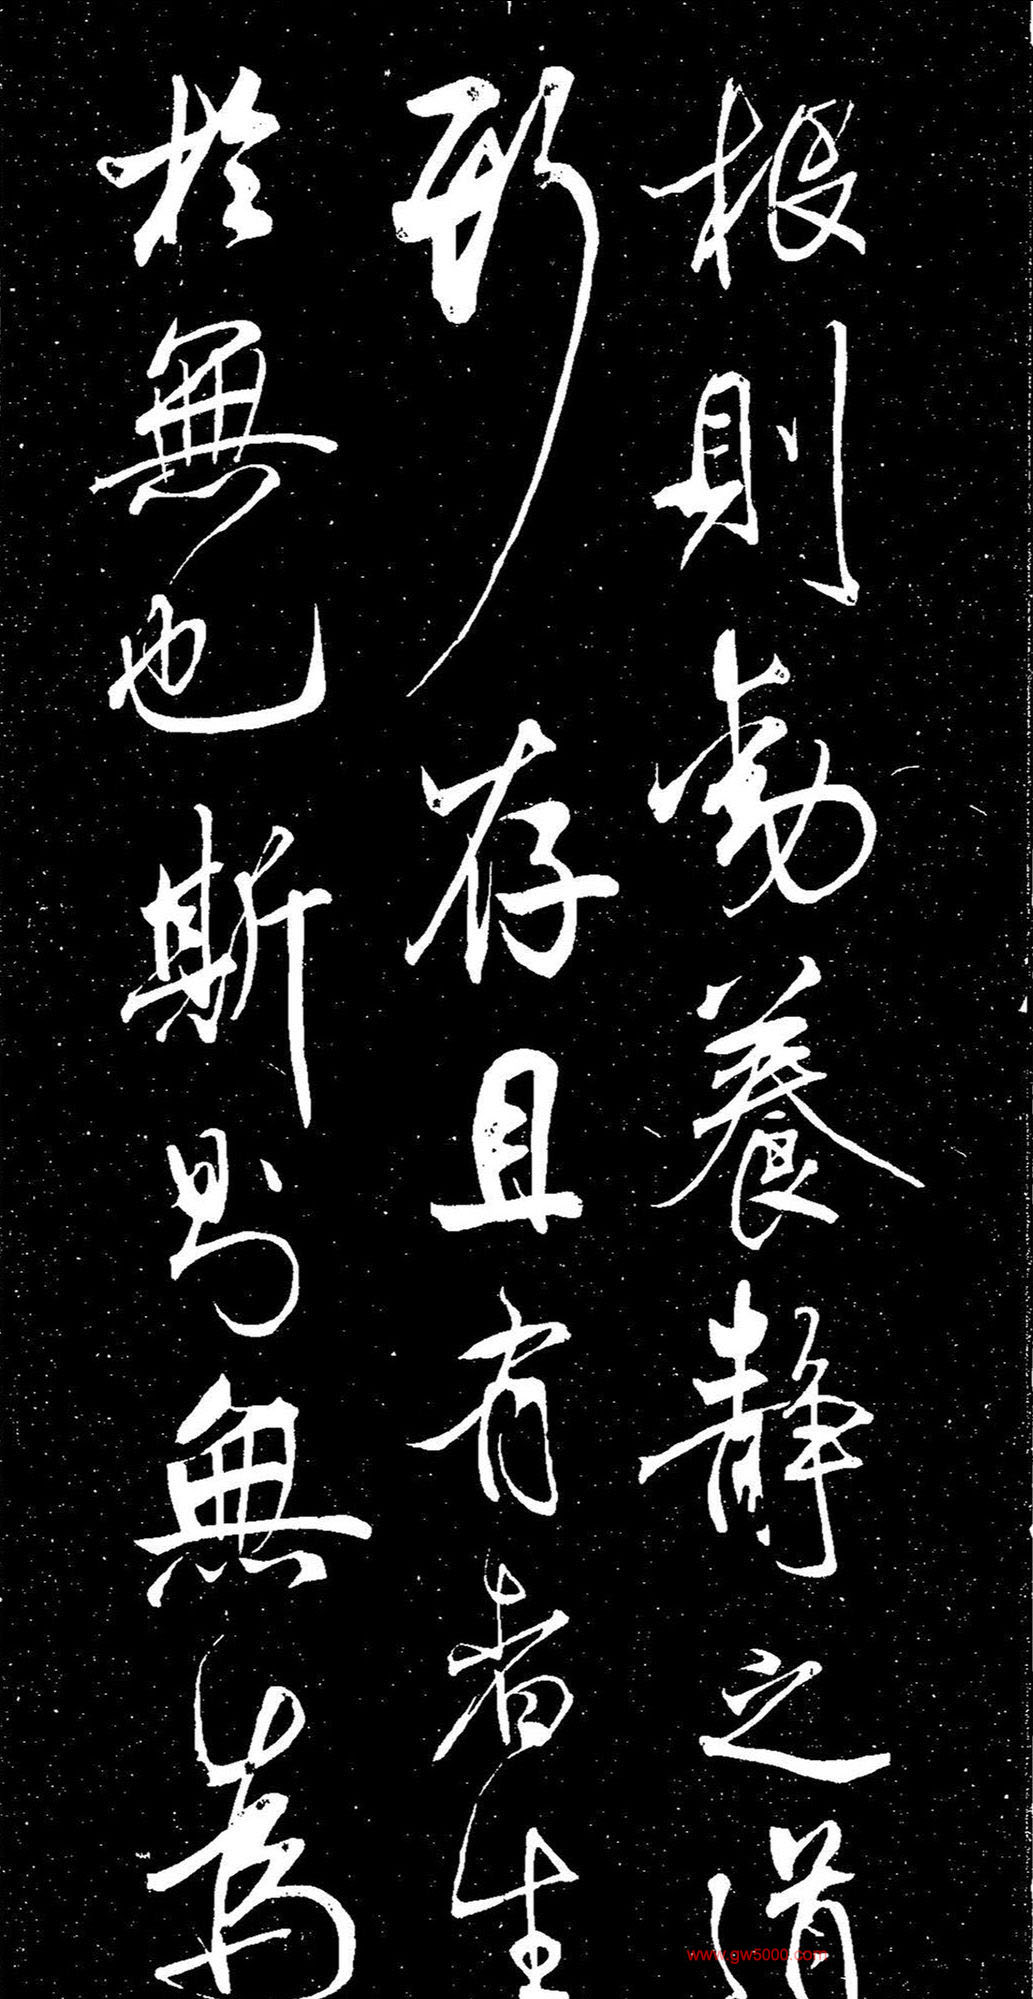 根則動養静之道
形存且有者生
於無也斯則無為
www.gw5000.com